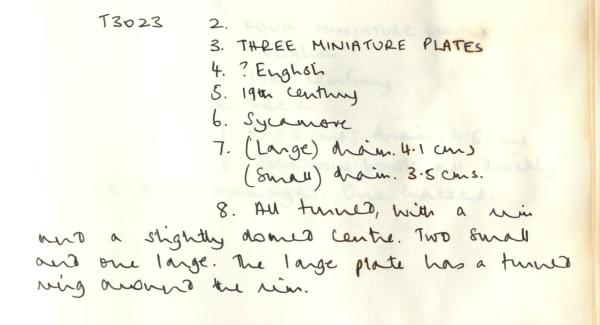 T3023 2.
3. THREE MINIATURE PLATES
4. ? English
5. 19th Century
6. Sycamore
7. (Large) diam. 4.1 cms
(Small) diam. 3.5 cms.
8. All turned, with a rim
and a slightly domed centre. Two small
and one large. The large plate has a turned
ring around the rim.